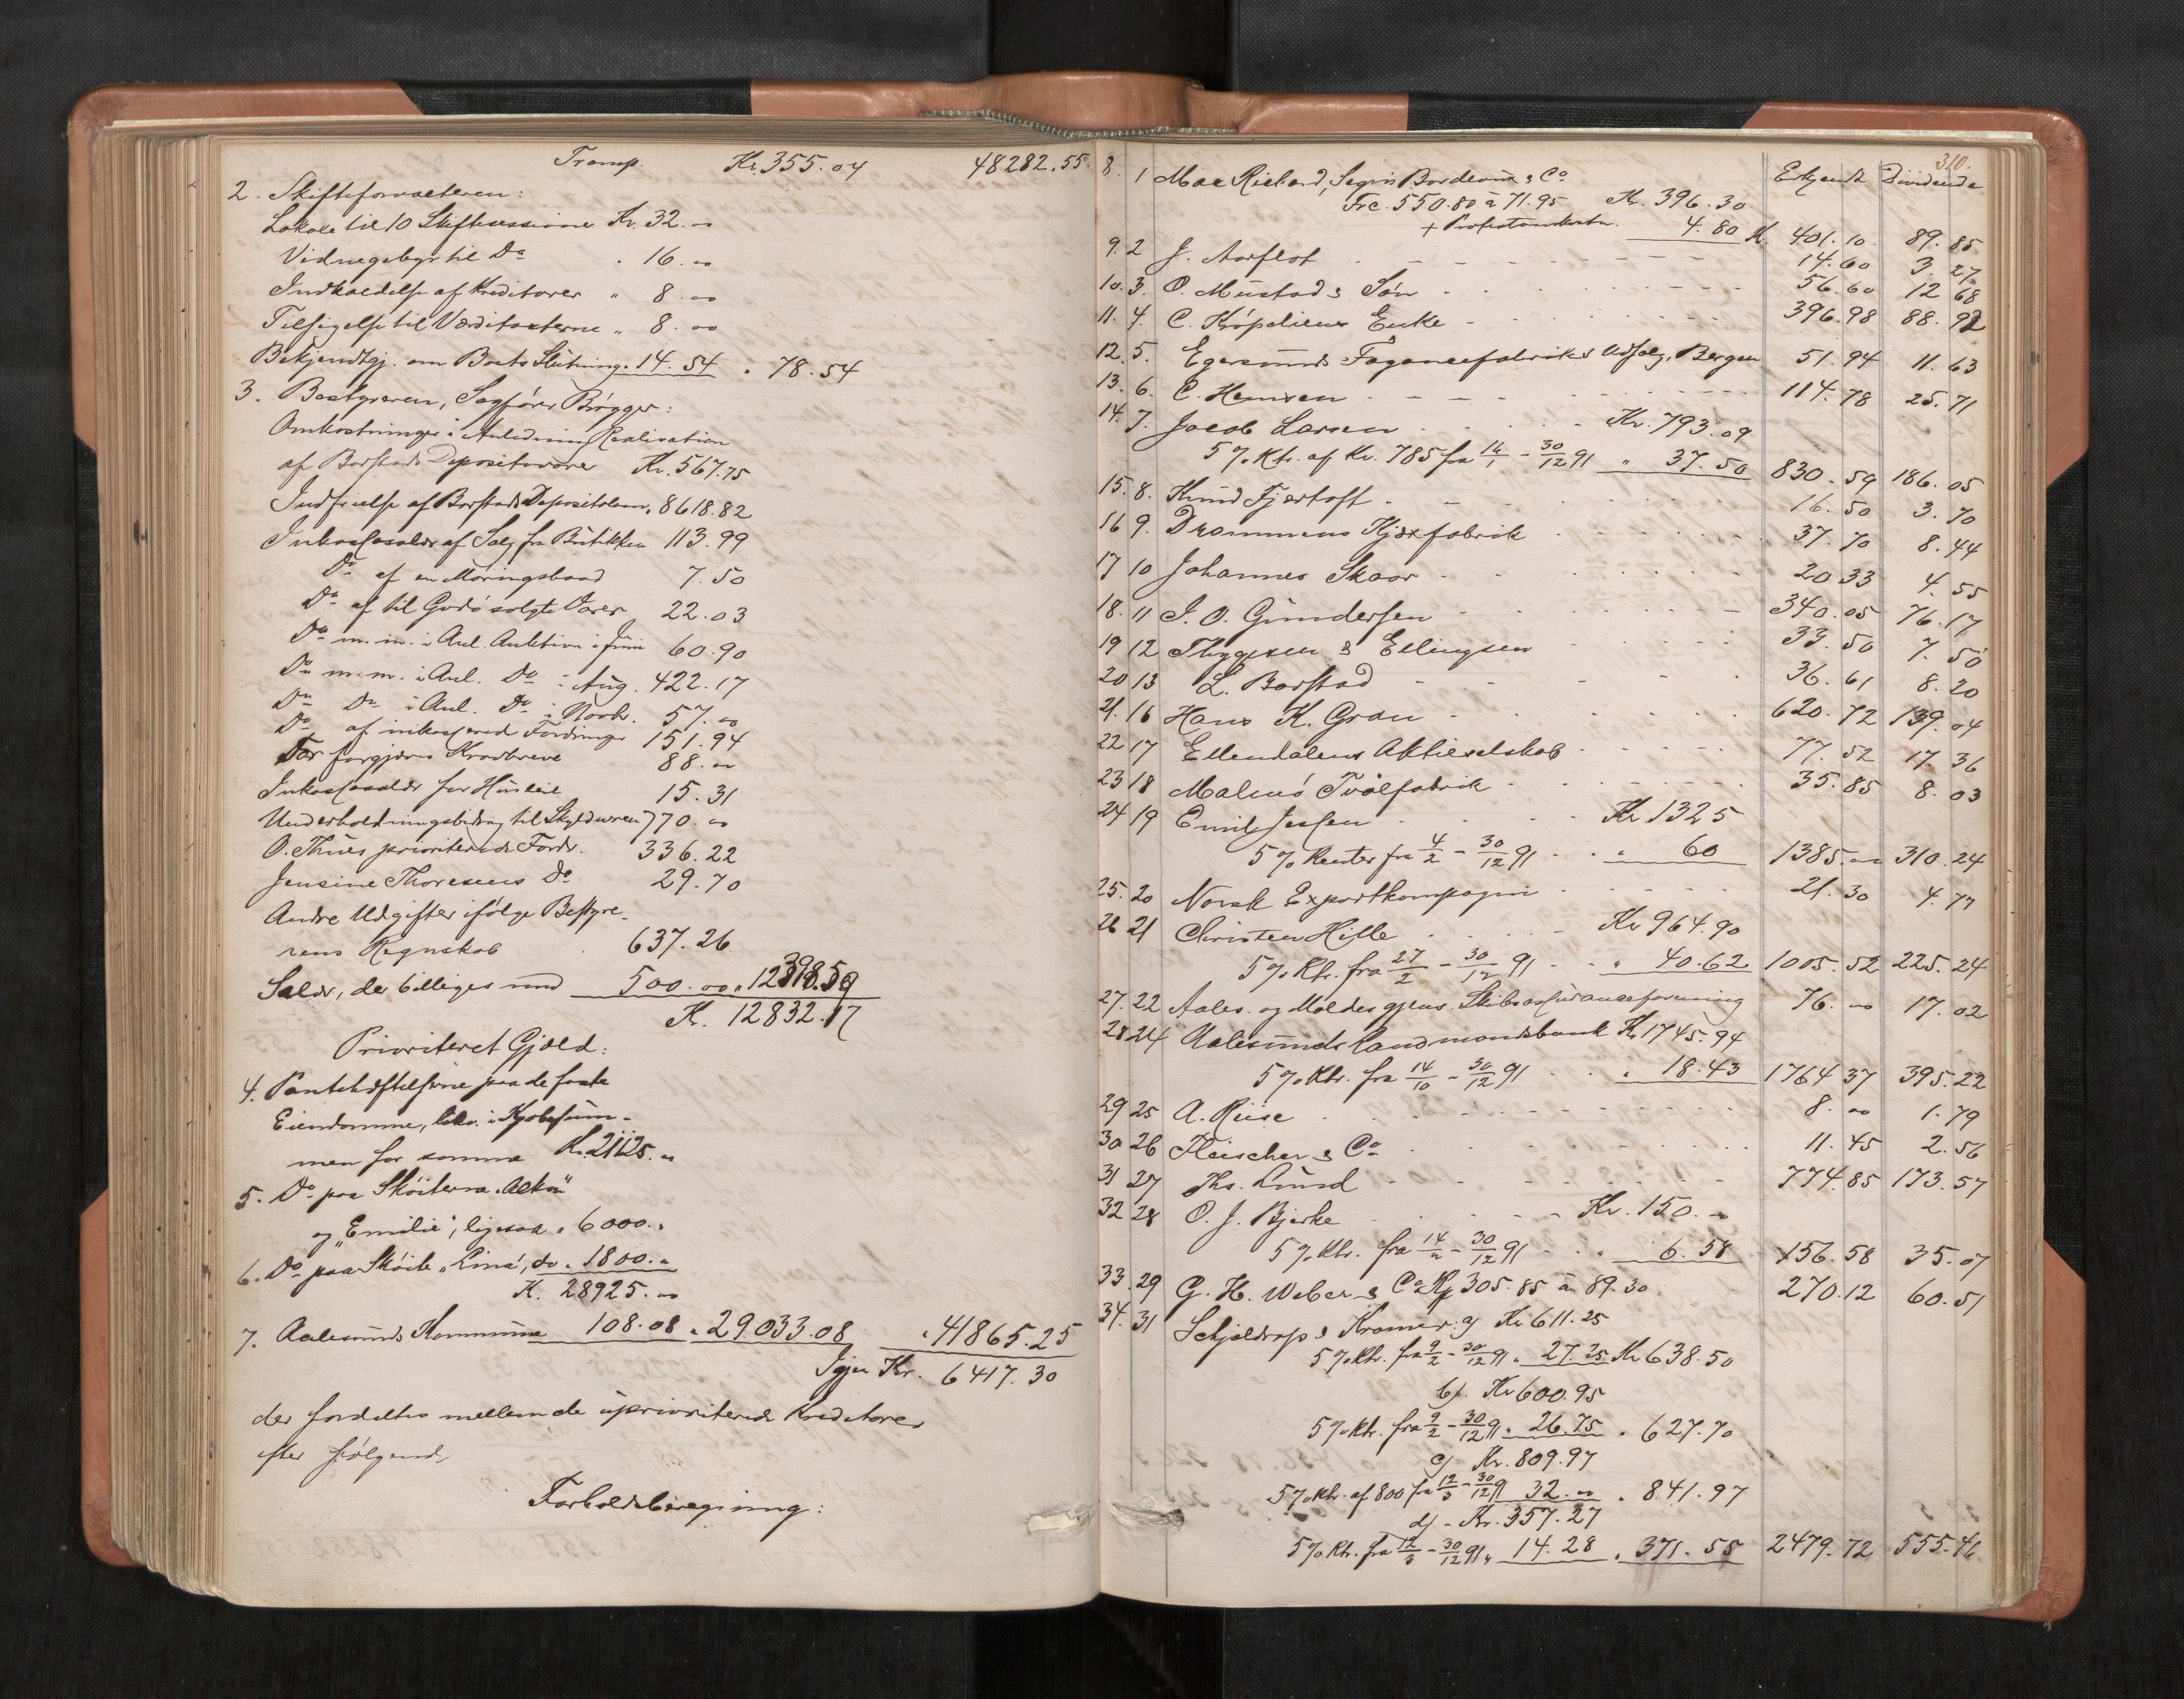 Transp. Kr. 355.04 48282.55.
2. Skifteforvalteren:
Lokale til 10 Skiftesessioner Kr. 32.„
Vidnegebyr til Do „ 16.„
Indkaldelse af Kreditorer „ 8.00
Tilsigelse til Værditaxterne „ 8.00
Bekjendtgj. om Boets Slutning „ 14.54 „ 78.54
3. Bestyreren, Sagfører Brøgger:
Omkostninger i Anledning Realisation
af Borstads Depositovarer Kr. 567.75
Indfrielse af Borstads Depositolaan „ 8618.82
Inkassosalær af Salg fra Butikken 113.99
Do af en Møringsbaad 7.50
Do af til Godø solgte Varer 22.03
Do m.m. i Anl. Auktion i Juni 60.90
Do m.m. i Anl. Do i Aug. 422.17
Do Do i Anl. Do i Novbr. 57.„
Do af inkasserede Fordringer 151.94
For forgjæves Kravbreve 88.„
Inkassosalær for Husleie 15.31
Underholdningsbidrag til Skyldneren 770.„
O. Thues prioriterede Fordr. 336.22
Jensine Thoresens Do 29.70
Andre Udgifter ifølge Bestyre-
rens Regnskab 637.26
Salær, der billiges med 500.00 „ 12398.59
K. 12832.17
Prioriteret Gjæld:
4. Pantehæftelserne paa de faste
Eiendomme, bekv. i Kjøbesum-
men for samme Kr. 21125.„
5. Do paa Skøiterne „Alka“
og „Emilie“, ligesaa „ 6000.„
6. Do paa Skøite „Lina“, do „ 1800.„
K. 28925.„
7. Aalesunds Kommune 108.08 „ 29033.08 „ 41865.25
Igjen Kr. 6417.30
der fordeltes mellem de uprioriterede Kreditorer
efter følgende
Forholdsberegning:
310.
Erkjendt Dividende
8. 1 Max Richard, Segin Bordeaux & Co
Frc. 550.80 à 71.95 Kr. 396.30
+ Protestomkostn. 4.80 K. 401.10 89.85
9. 2 J. Aarflot 14.60 3.27
10. 3. O. Mustad & Søn 56.60 12.68
11. 4. C. Kröpeliens Enke 396.98 88.92
12. 5. Egersunds Fayancefabriks Udsalg, Bergen 51.94 11.63
13. 6. C. Hemsen 114.78 25.71
14. 7. Jacob Larsen Kr. 793.09
5 % Rtr. af Kr. 785 fra 16/1 - 30/12 91 „ 37.50 830.59 186.05
15. 8. Knud Fjørtoft 16.50 3.70
16 9. Drammens Kjæxfabrik 37.70 8.44
17 10 Johannes Skaar 20.33 4.55
18. 11 J. O. Gundersen 340.05 76.17
19 12 Thygesen & Ellingsen 33.50 7.50
20 13 L. Borstad 36.61 8.20
21. 16 Hans K. Gran 620.72 139.04
22 17 Ellendalens Aktieselskab 77.52 17.36
23 18 Malmö Tvålfabrik 35.85 8.03
24 19 Emil Jessen Kr 1325
5 % Renter fra 4/2 - 30/12 91 „ 60 1385.„ 310.24
25. 20 Norsk Exportkompagni 21.30 4.77
26 21 Christen Hille Kr 964.90
5 % Rtr. fra 27/2 - 30/12 91 „ 40.62 1005.52 225.24
27. 22 Aales. og Moldes gjens. Skibsassuranceforening 76.„ 17.02
28 24 Aalesunds Landmandsbank Kr 1745.94
5 % Rtr. fra 14/10 - 30/12 91 „ 18.43 1764.37 395.22
29 25 A. Riise 8.„ 1.79
30 26 Fleischer & Co 11.45 2.56
31 27 Ths. Lund 774.85 173.57
32 28 O. J. Bjerke Kr. 150.„
5 % Rtr. fra 14/2 - 30/12 91 „ 6.58 156.58 35.07
33. 29 G. H. Weber & Co Rf 305.85 à 89.30 270.12 60.51
34. 31 Schjeldrop & Kramer: a) Kr 611.25
5 % Rtr. fra 9/2 - 30/12 91 „ 27.25 Kr 638.50
b). Kr 600.95
5 % Rtr. fra 9/2 - 30/12 91 „ 26.75 „ 627.70
c) Kr. 809.97
5 % Rtr. af 800 fra 12/3 - 30/12 91 32.„ „ 841.97
d) - Kr. 357.27
5 % Rtr. fra 12/3 - 30/12 91 „ 14.28 „ 371.55 2479.72 555.46